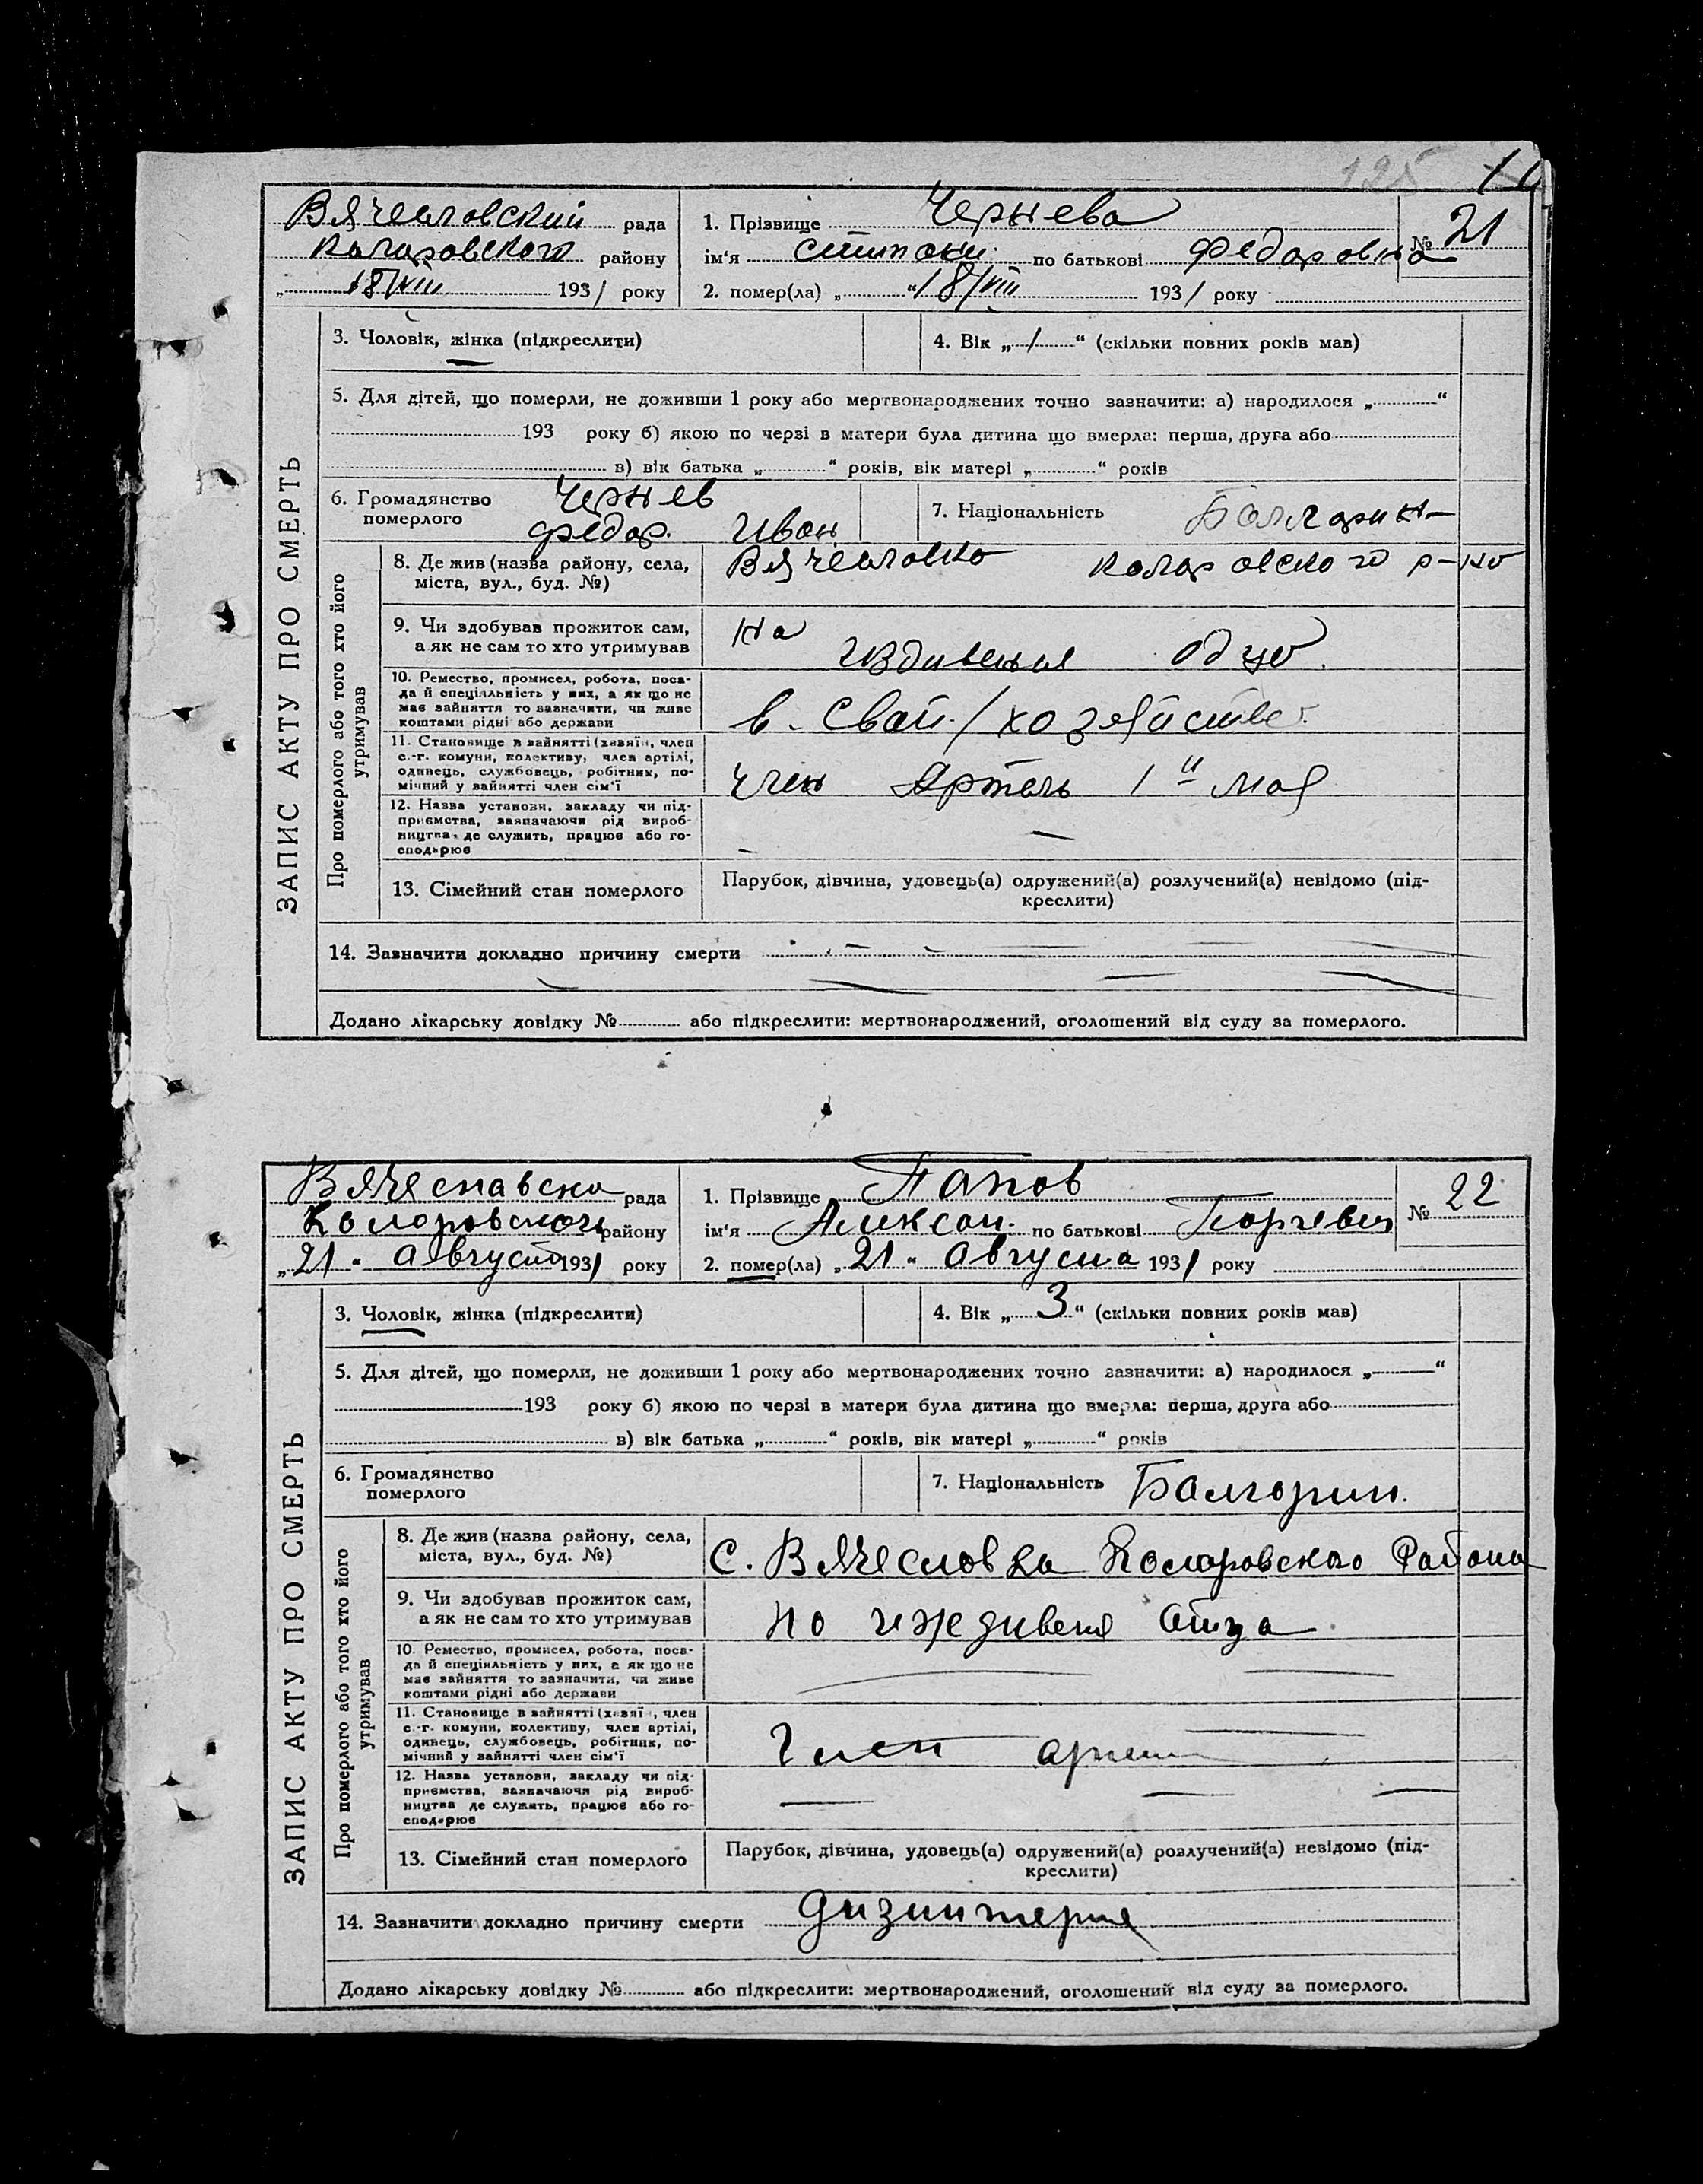 125
Вячесловский рада
Коларовского району
„ 18/VIII 1931 року
1. Прізвище Чернева
ім'я по батькові Федоровна
№ 21
2. помер(ла) „ “ 18/VIII 1931 року
ЗАПИС АКТУ ПРО СМЕРТЬ
3. Чоловік, жінка (підкреслити)
4. Вік „ 1 “ (скільки повних років мав)
5. Для дітей, що померли, не доживши 1 року або мертвонароджених точно зазначити: а) народилося „ “
193 року б) якою по черзі в матери була дитина що вмерла: перша, друга або
в) вік батька „ “ років, вік матері „ “ років
6. Громадянство померлого Чернев
Федор. Иван
7. Національність Болгарин
Про померлого або того хто його утримував
8. Де жив (назва району, села,
міста, вул., буд. №)
Вячесловка Коларовского р-на
9. Чи здобував прожиток сам,
а як не сам то хто утримував
на издивения
10. Ремество, промисел, робота, поса-
да й специяльність у них, а як що не
має зайняття то зазначити, чи живе
коштами рідні або держави
в. свой / хозяйстве
11. Становище в зайнятті (хазяїн, член
с.-г. комуни, колективу, член артілі,
одинець, службовець, робітник, по-
мічний у зайнятті член сім'ї
Член Артель 1и мая
12. Назва установи, закладу чи під-
приємства, зазначаючи рід вироб-
ництва, де служить, працює або го-
сподарює
13. Сімейний стан померлого
Парубок, дівчина, удовець(а) одружений(а) розлучений(а) невідомо (під-
креслити)
14. Зазначити докладно причину смерти
Додано лікарську довідку № або підкреслити: мертвонароджений, оголошений від суду за померлого.
Вячеславска рада
Коларовского району
„21“ Августа 1931 року
1. Прізвище Папов
ім'я Алексан. по батькові Георгевич
№ 22
2. помер(ла) „21“ Августа 1931 року
ЗАПИС АКТУ ПРО СМЕРТЬ
3. Чоловік, жінка (підкреслити)
4. Вік „ 3 “ (скільки повних років мав)
5. Для дітей, що померли, не доживши 1 року або мертвонароджених точно зазначити: а) народилося „ “
193 року б) якою по черзі в матери була дитина що вмерла: перша, друга або
в) вік батька „ “ років, вік матері „ “ років
6. Громадянство
померлого
7. Національність Балгорин.
Про померлого або того хто його утримував
8. Де жив (назва району, села,
міста, вул., буд. №)
С. Вячесловка Коларовского Района
9. Чи здобував прожиток сам,
а як не сам то хто утримував
на ижедивеня Отца
10. Ремество, промисел, робота, поса-
да й специяльність у них, а як що не
має зайняття то зазначити, чи живе
коштами рідні або держави
11. Становище в зайнятті (хазяїн, член
с.-г. комуни, колективу, член артілі,
одинець, службовець, робітник, по-
мічний у зайнятті член сім'ї
Член артели
12. Назва установи, закладу чи під-
приємства, зазначаючи рід вироб-
ництва де служить, працює або го-
сподарює
13. Сімейний стан померлого
Парубок, дівчина, удовець(а) одружений(а) розлучений(а) невідомо (під-
креслити)
14. Зазначити докладно причину смерти дизинтерия
Додано лікарську довідку № або підкреслити: мертвонароджений, оголошений від суду за померлого.